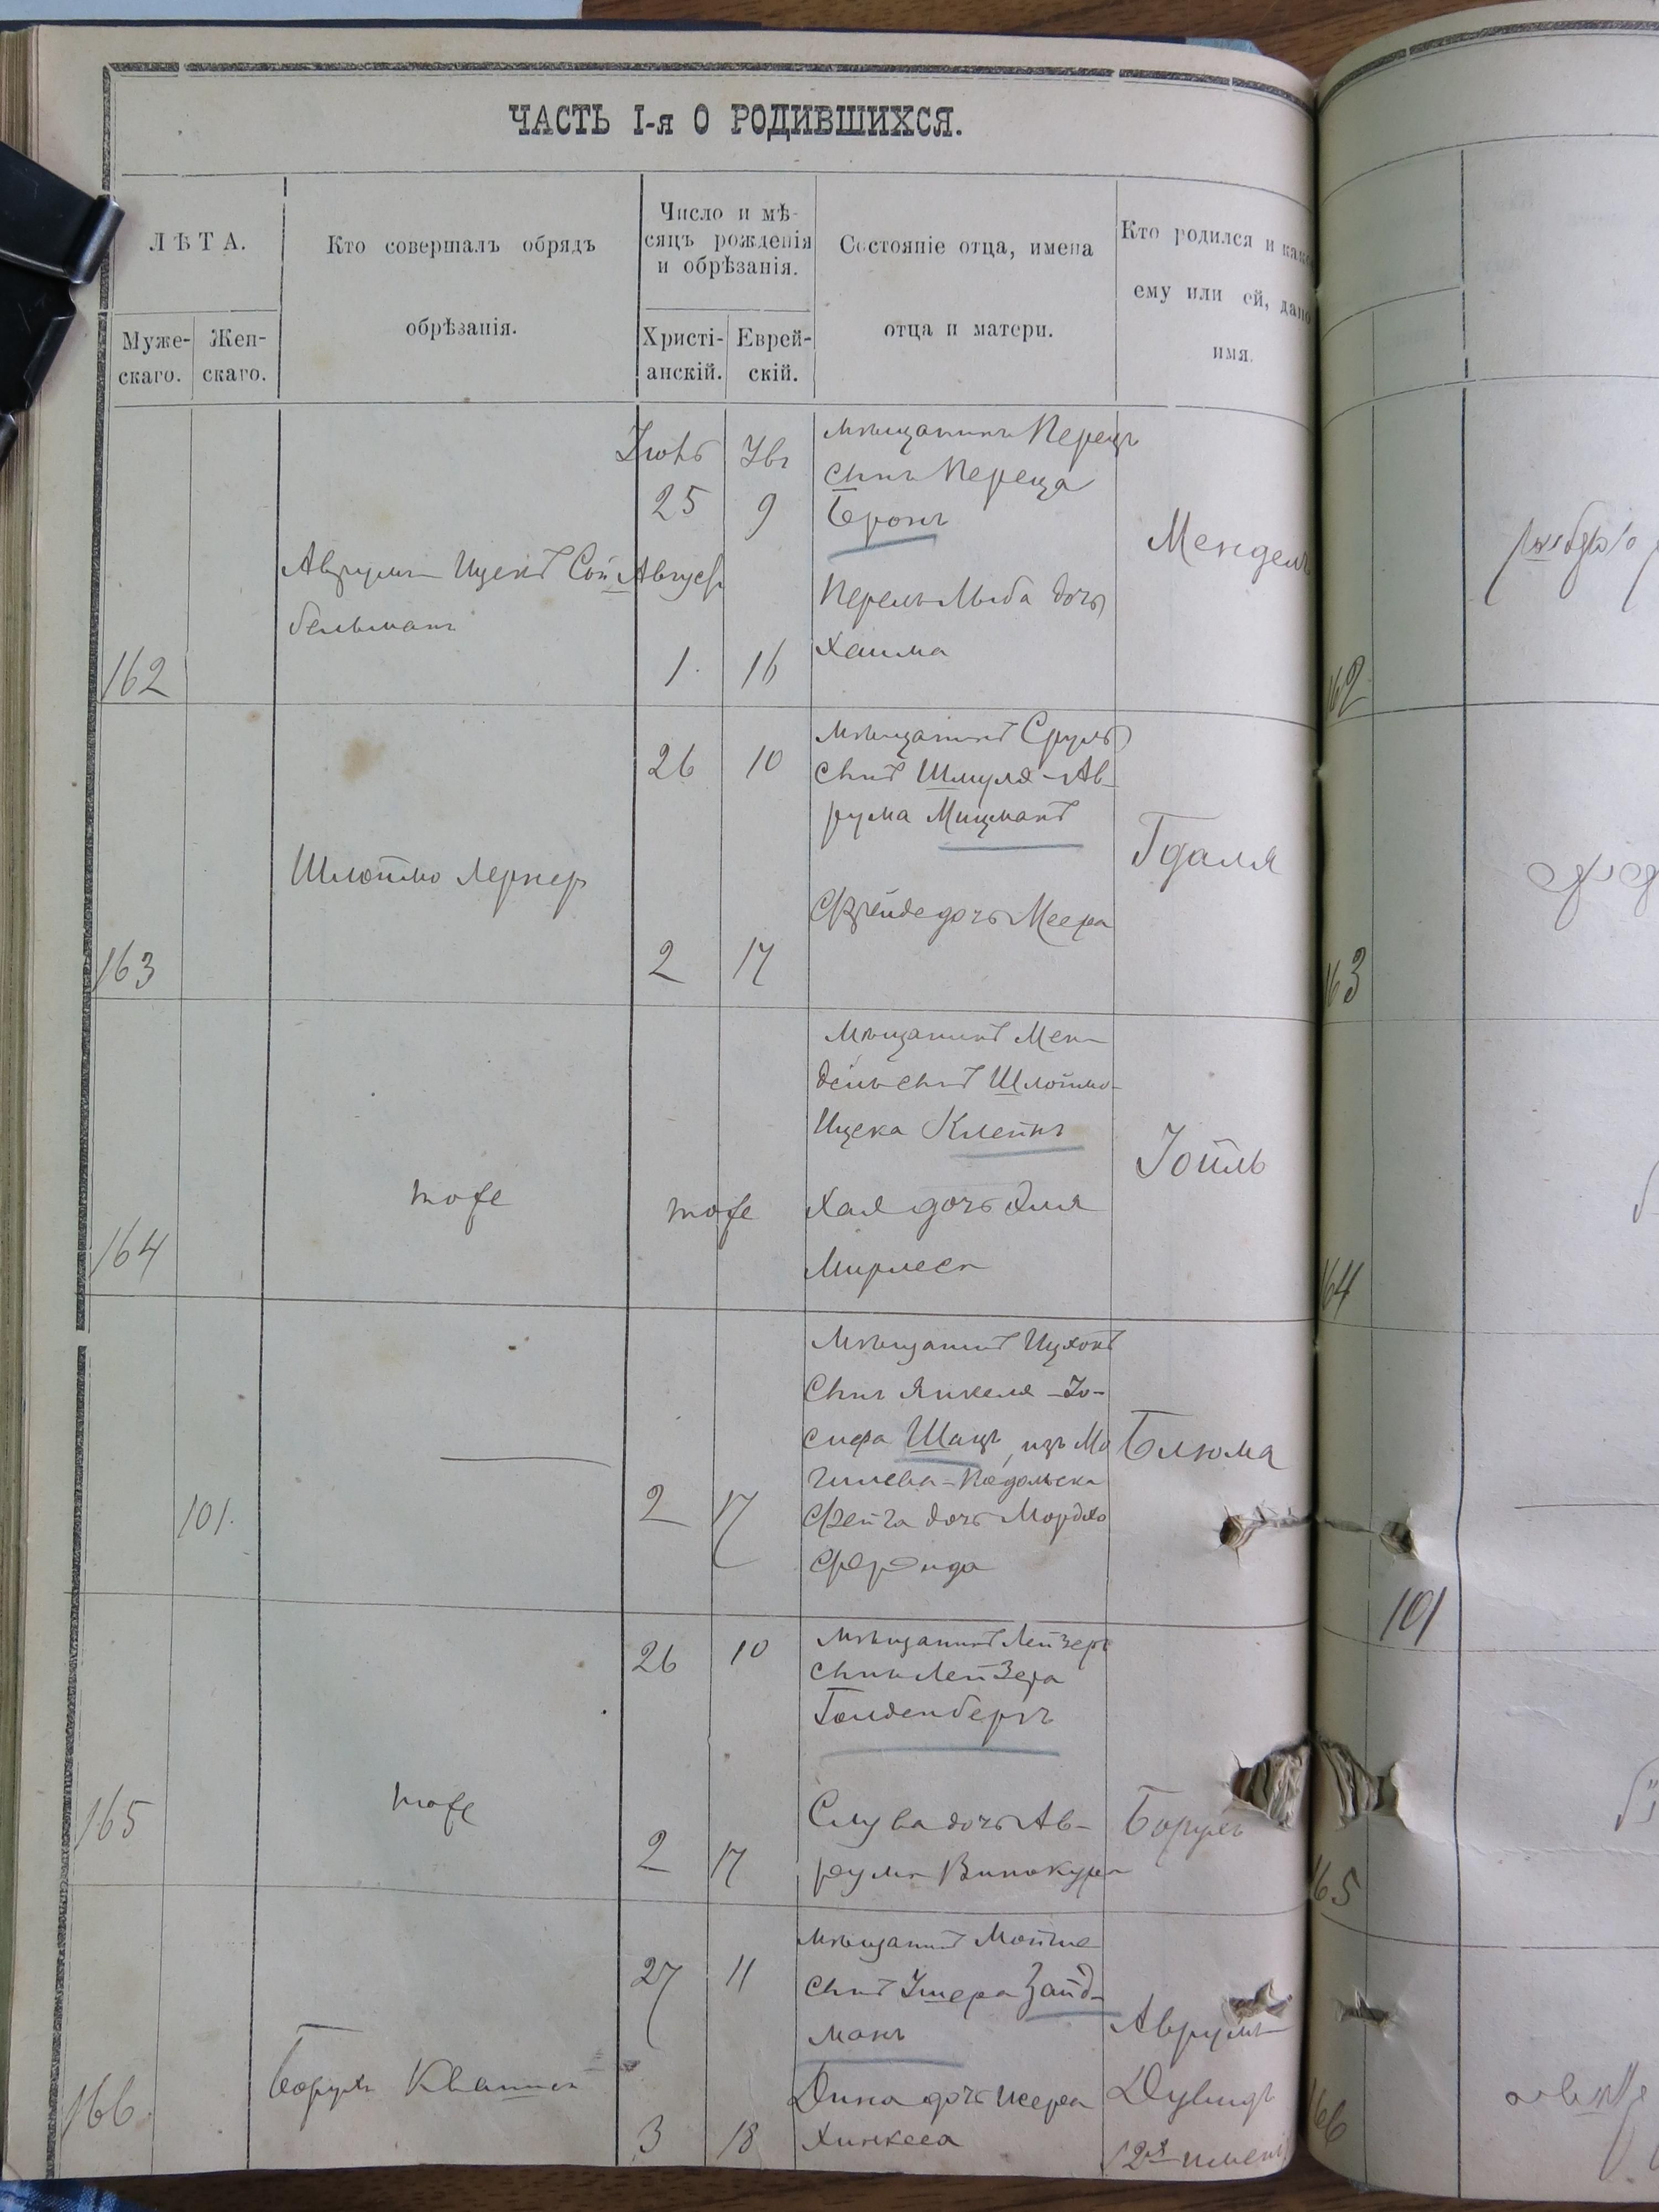 ЧАСТЬ I-я О РОДИВШИХСЯ.
ЛѢТА.
Муже-
скаго.
Жен-
скаго.
Кто совершалъ обрядъ
обрѣзанія.
Число и мѣ-
сяцъ рожденія
и обрѣзанія.
Христі-
анскій.
Еврей-
скій.
Состояніе отца, имена
отца и матери.
Кто родился и како
ему или ей, дано
имя.
162
Аврумъ Ицекъ Сой
бельманъ
25
9
Августъ
1.
16
мѣщанинъ Перецъ
сынъ Переца
Бронъ
Перель Люба дочь
Хаима
Мендель
162
163
Шлоймо Лернер
26
10
2
17
мѣщанинъ Сруль
сынъ Шмуля-Ав-
рума Мицманъ
Фрейде дочь Меера
Гдаля
163
164
тоже
тоже
Мѣщанинъ Мен-
дель сынъ Шлоймо-
Ицека Клейнъ
Хая дочь Эля
Мирлеса
Іойль
164
101.
2
17
Мѣщанинъ Ицхокъ
сынъ Янкеля-Іо-
сифа Шацъ, изъ Мо
гилева-Подольска
Фейга дочь Мордко
Блюма
101
165
тоже
26
10
2
17
мѣщанинъ Лейзеръ
сынъ Лейзера
Голденбергъ
Слува дочь Ав-
рума Винокура
Борухъ
165
166.
Борухъ
27
11
3
18
мѣщанинъ Мойше
сынъ Ушера Зайд-
манъ
Дина дочь Иcера
Хинкеса
Аврумъ
Дувидъ
/2хъ имен/
166